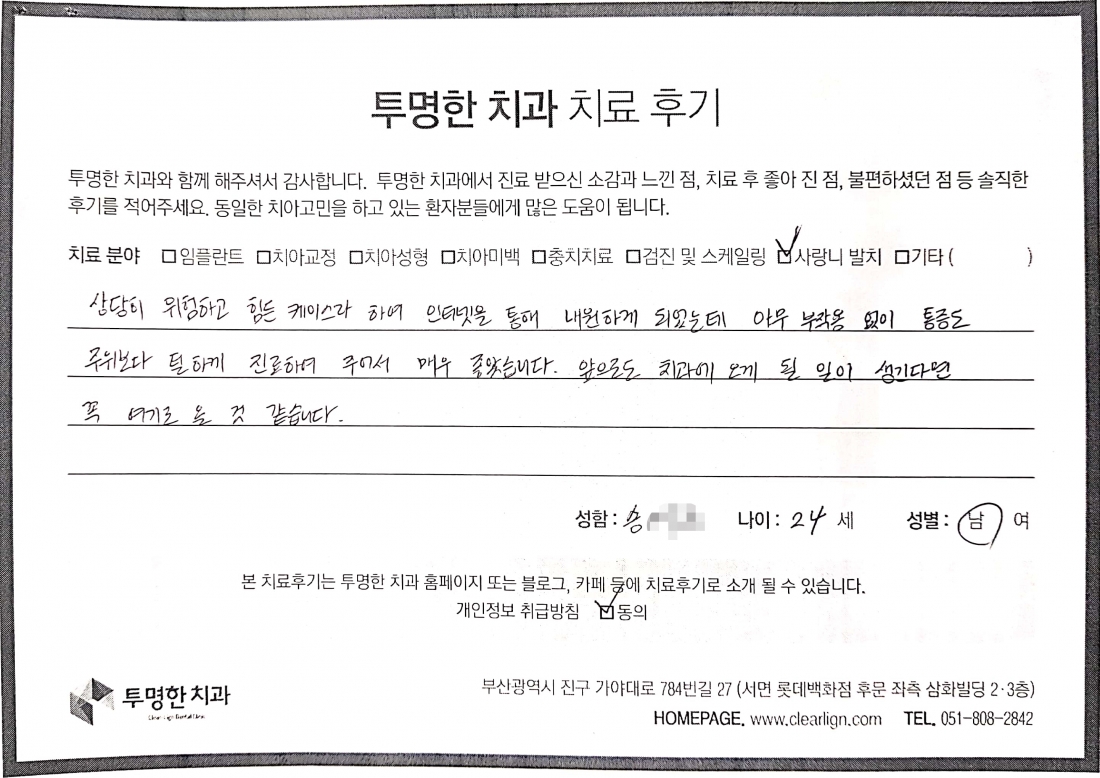 투명한 치과 치료 후기
투명한 치과와 함께 해주셔서 감사합니다. 투명한 치과에서 진료 받으신 소감과 느낀 점, 치료 후 좋아 진 점, 불편하셨던 점 등 솔직한
후기를 적어주세요. 동일한 치아고민을 하고 있는 환자분들에게 많은 도움이 됩니다.
치료 분야 □임플란트 □치아교정 □치아성형 □치아미백 □충치치료 □검진 및 스케일링 ☑사랑니 발치 □기타 ( )
상당히 위험하고 힘든 케이스라 하여 인터넷을 통해 내원하게 되었는데 아무 부작용 없이 통증도
주위보다 덜하게 진료하여 주어서 매우 좋았습니다. 앞으로도 치과에 오게 될 일이 생긴다면
꼭 여기로 올 것 같습니다.
성함 : 송 나이 : 24 세 성별 : 남 여
본 치료후기는 투명한 치과 홈페이지 또는 블로그, 카페 등에 치료후기로 소개 될 수 있습니다.
개인정보 취급방침 ☑동의
투명한 치과
부산광역시 진구 가야대로 784번길 27 (서면 롯데백화점 후문 좌측 삼화빌딩 2·3층)
HOMEPAGE. www.clearlign.com TEL. 051-808-2842